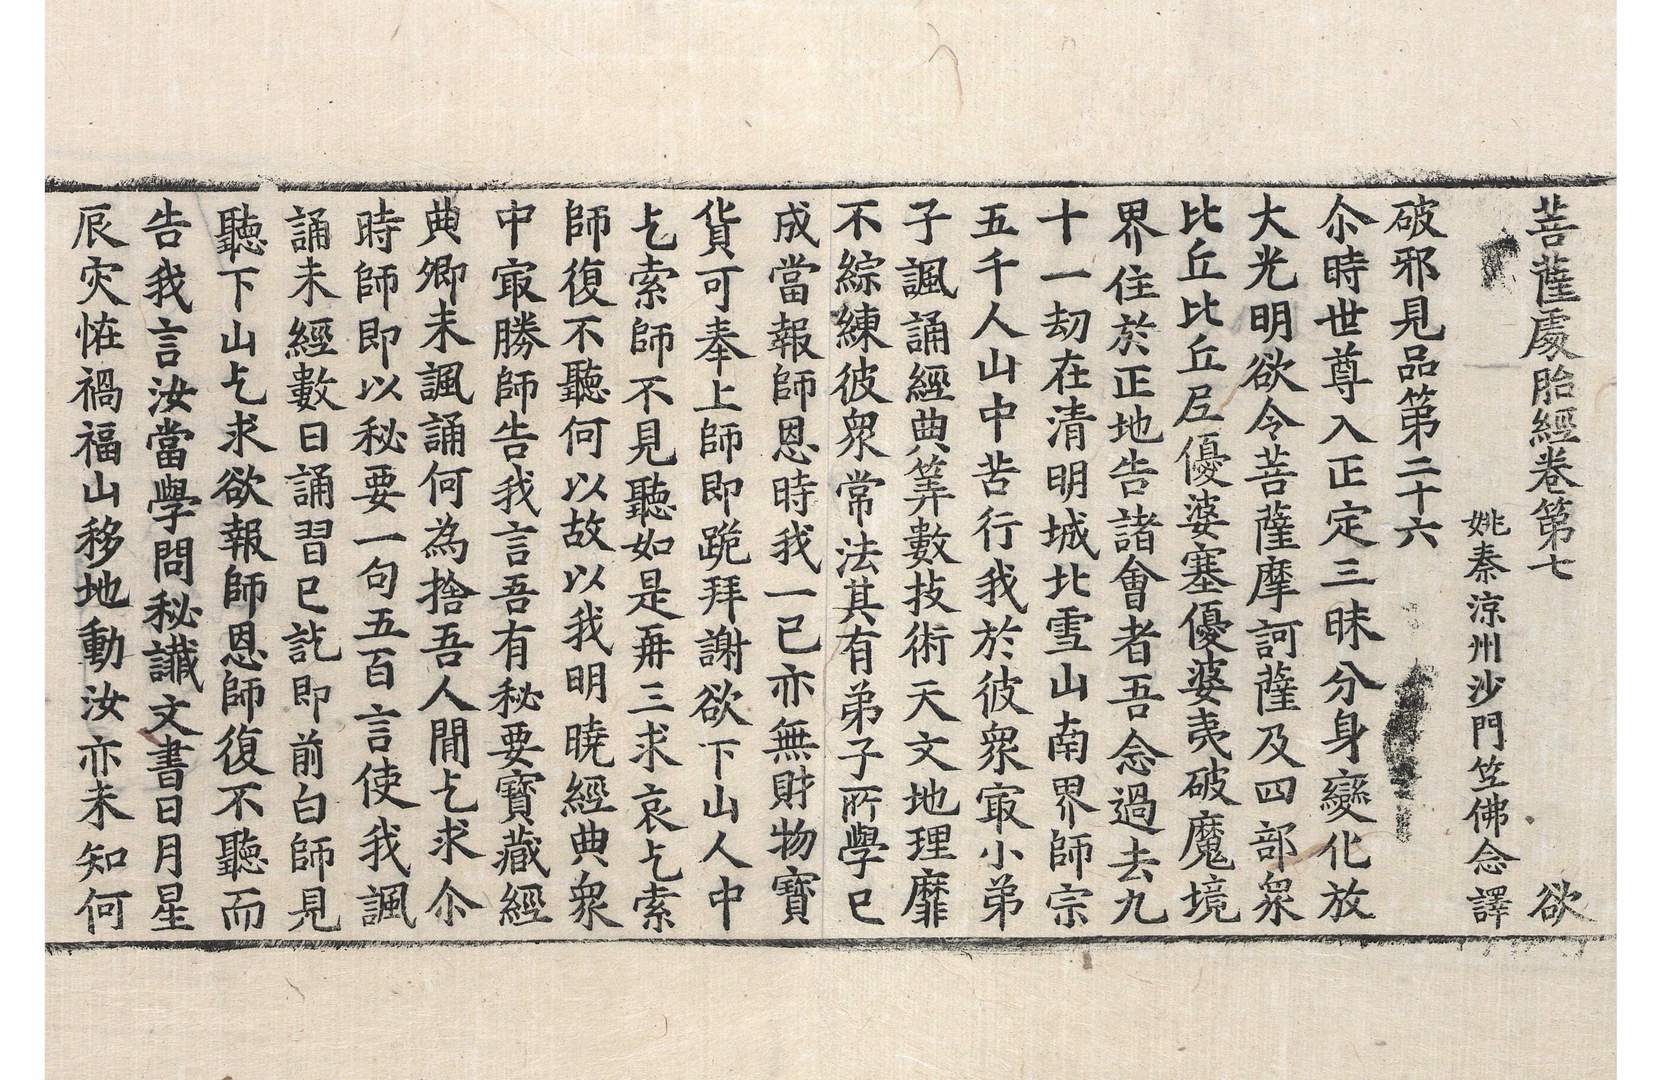 菩薩處胎經卷第七 欲
姚秦涼州沙門竺佛念譯
破邪見品第二十六
尒時世尊入正定三昧分身變化放
大光明欲令菩薩摩訶薩及四部衆
比丘比丘尼優婆塞優婆夷破魔境
界住於正地告諸會者吾念過去九
十一劫在清明城北雪山南界師宗
五千人山中苦行我於彼衆㝡小弟
子諷誦經典筭數技術天文地理靡
不綜練彼衆常法其有弟子所學已
成當報師恩時我一已亦無財物寶
貨可奉上師即跪拜謝欲下山人中
乞索師不見聽如是再三求哀乞索
師復不聽何以故以我明曉經典衆
中㝡勝師告我言吾有秘要寶藏經
典卿未諷誦何為捨吾人間乞求尒
時師即以秘要一句五百言使我諷
誦未經數日誦習已訖即前白師見
聽下山乞求欲報師恩師復不聽而
告我言汝當學問秘讖文書日月星
辰灾恠禍福山移地動汝亦未知何